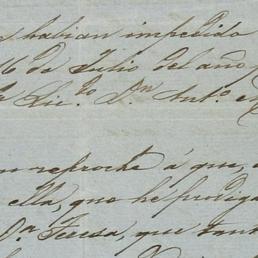 habian impedido
16 de Julio del año
Lic.do Dn Anto.
reproche á que,
ella, que he prodiga
Da Teresa, que tant